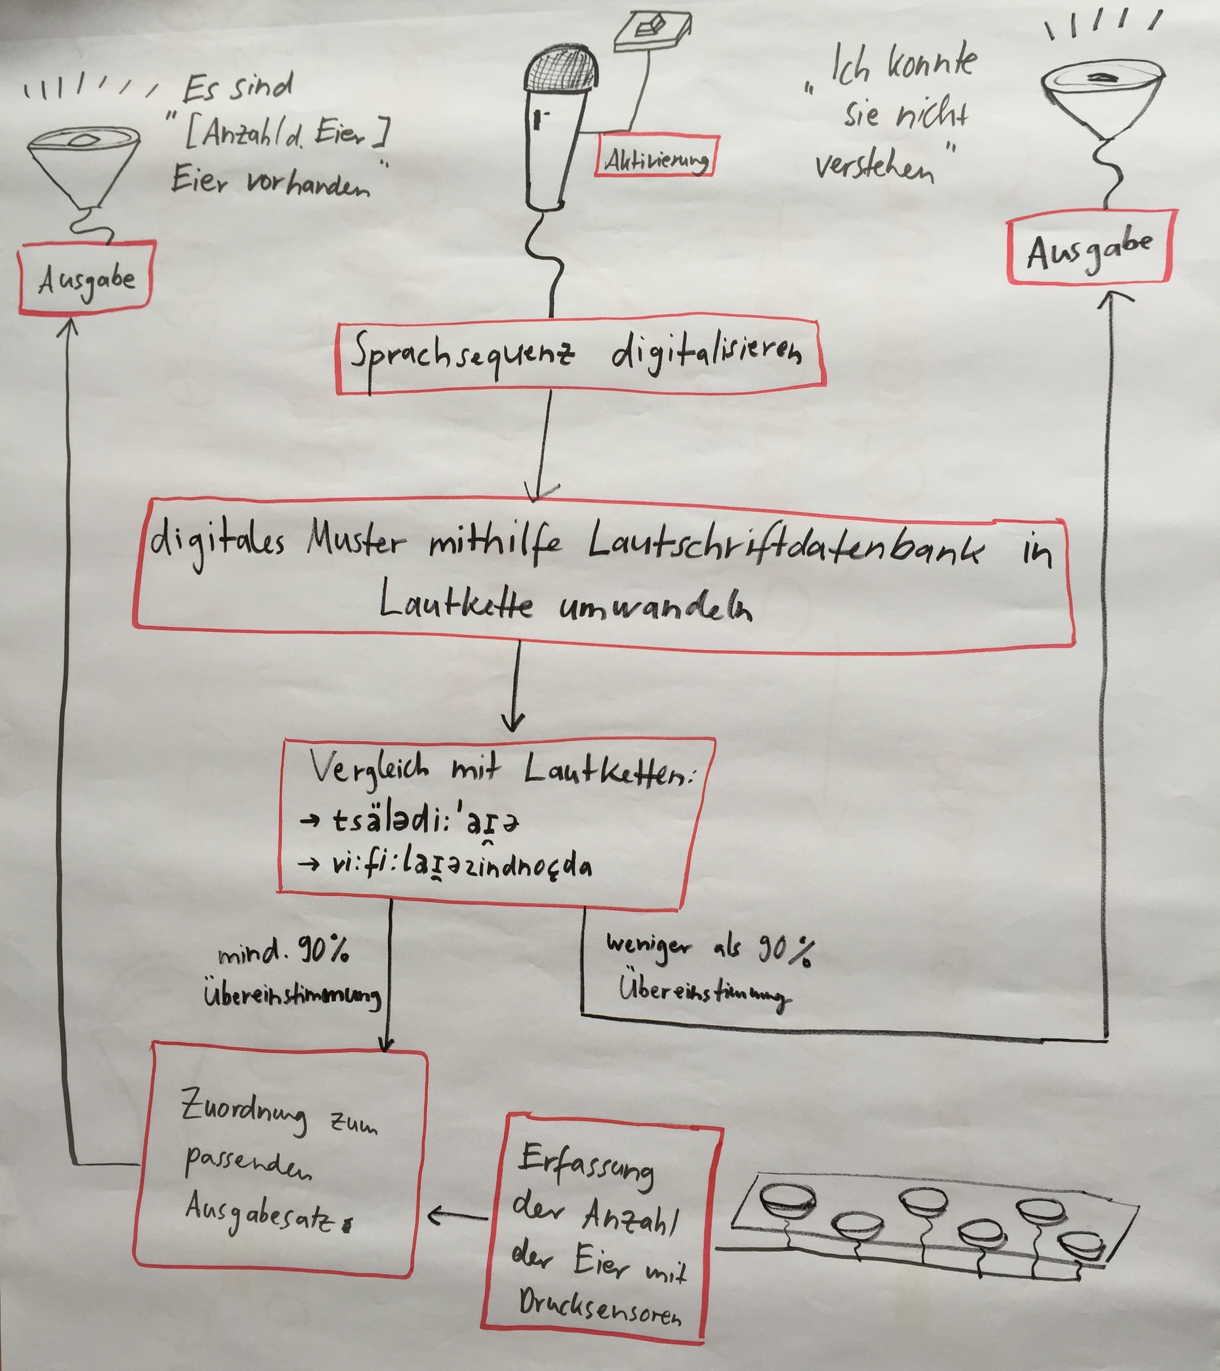 Es sind
"[Anzahl d. Eier]
Eier vorhanden"
Ausgabe
Aktivierung
Ich konnte
„ sie nicht
verstehen"
Ausgabe
Sprachsequenz digitalisieren
digitales Muster mithilfe Lautschriftdatenbank in
Lautkette umwandeln
Vergleich mit Lautketten:
→ tsälədi:'aɪ̯ə
→ vi:fi:laɪ̯əzindnoçda
mind. 90%
Übereinstimmung
weniger als 90%
Übereinstimmung
Zuordnung zum
passenden
Ausgabesatz.
Erfassung
der Anzahl
der Eier mit
Drucksensoren